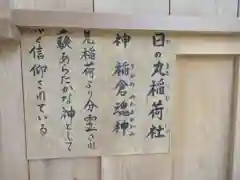 日の丸稲荷社
神 稲倉魂神
見稲荷より分霊され
験あらたかな神として
く信仰されている